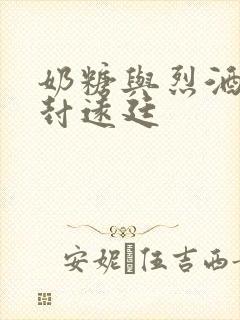 奶糖與烈酒
封遠廷
安妮伍吉西